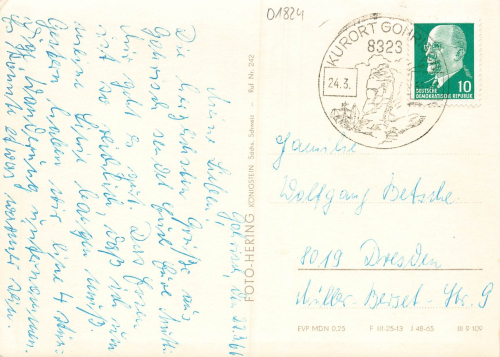 D1824
KURORT GOHR
8323
24.3.
DEUTSCHE
DEMOKRATISCHE REPUBLIK
10
Familie
Wolfgang Betsche
8019 Dresden
Müller-Berset-Str. 9
EVP MDN 0,25 F III-25-13 J 48-65 III 9 109
FOTO-HERING KÖNIGSTEIN, Sächs. Schweiz Ruf Nr. 242
Meine Lieben,
Die herzlichsten Grüße aus
Gohrisch sendet Euch Eure
Mir geht es gut. Das Essen
ist so reichlich, daß ich
meine
Gestern haben wir eine 4
Wanderung unternommen.